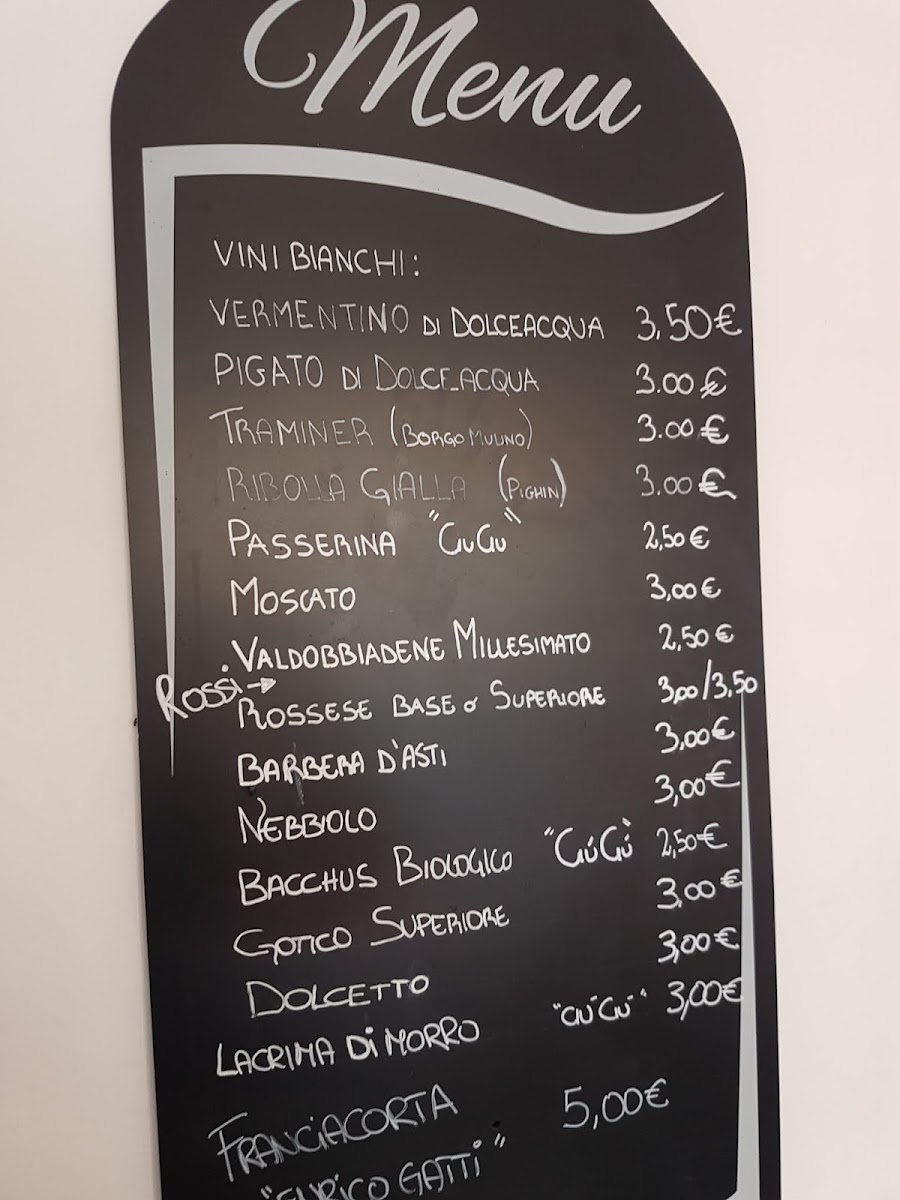 Menu
VINI BIANCHI:
VERMENTINO DI DOLCEACQUA 3,50€
PIGATO DI DOLCEACQUA 3.00€
TRAMINER (BORGO MULINO) 3.00€
RIBOLLA GIALLA (PIGHIN) 3.00€
PASSERINA "CIUCIU" 2,50€
MOSCATO 3,00€
VALDOBBIADENE MILLESIMATO 2,50€
ROSSI →
ROSSESE BASE o SUPERIORE 3,00/3,50
BARBERA D'ASTI 3,00€
NEBBIOLO 3,00€
BACCHUS BIOLOGICO "CIÚCIÙ 2,50€
GOTICO SUPERIORE 3,00€
DOLCETTO 3,00€
LACRIMA DI MORRO "CIÚCIÚ" 3,00€
FRANCIACORTA 5,00€
"ENRICO GATTI"